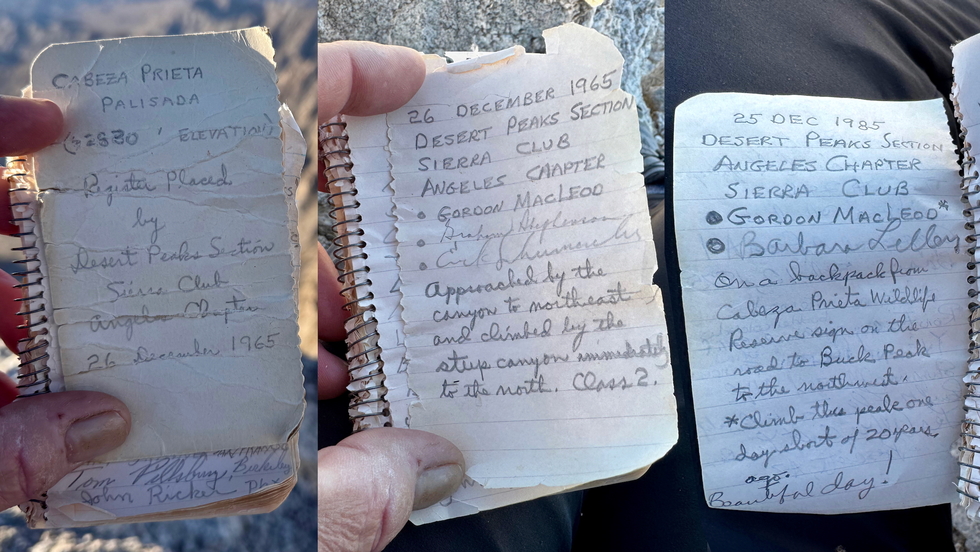 CABEZA PRIETA
PALISADA
(≈2830 ' ELEVATION)
Register Placed
by
Desert Peaks Section
Sierra Club
Angeles Chapter
26 december 1965
Tom Pillsbury, Berkeley
John Ricker Phx
26 DECEMBER 1965
DESERT PEAKS SECTION
SIERRA CLUB
ANGELES CHAPTER
• GORDON MACLEOD
• Graham Stephenson
•
Approached by the
canyon to northeast
and climbed by the
steep canyon immediately
to the north. Class 2.
25 DEC 1985
DESERT PEAKS SECTION
ANGELES CHAPTER
SIERRA CLUB
• GORDON MACLEOD*
• Barbara Lilley
On a backpack from
Cabeza Prieta Wildlife
Reserve sign on the
road to Buck Peak
to the northwest.
*Climb this peak one
day short of 20 years
ago.
Beautiful day!